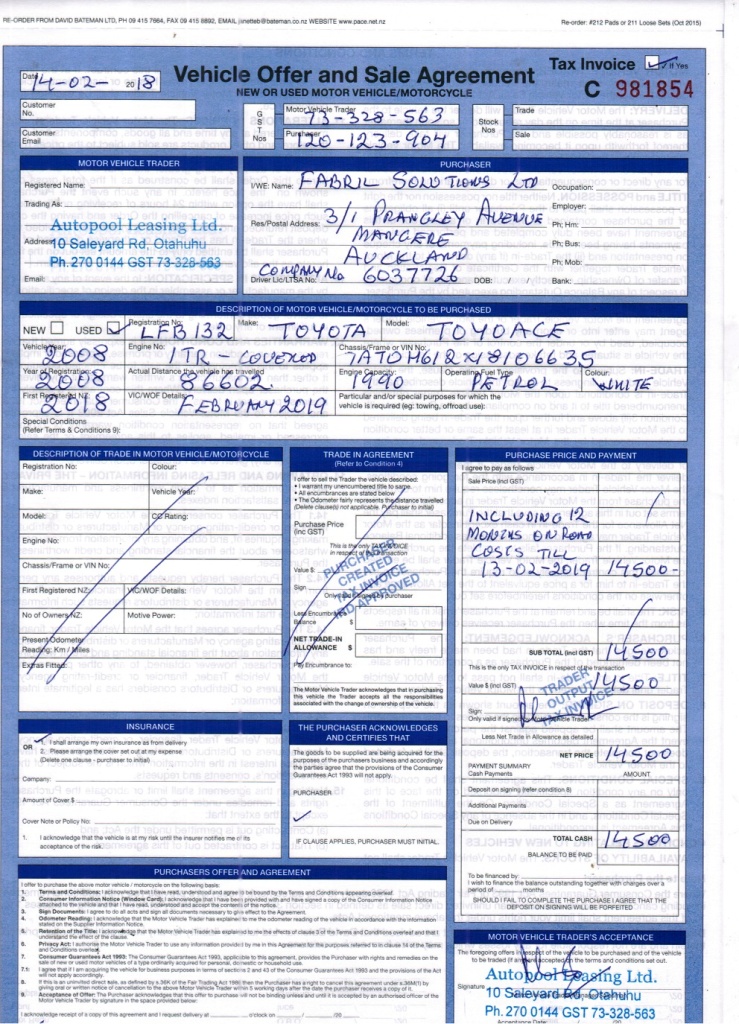 RE-ORDER FROM DAVID BATEMAN LTD, PH 09 415 7664, FAX 09 415 8892, EMAIL jsnetteb@bateman.co.nz WEBSITE www.pace.net.nz
Re-order: #212 Pads or 211 Loose Sets (Oct 2015)
Date 14-02- 2018
Vehicle Offer and Sale Agreement
NEW OR USED MOTOR VEHICLE/MOTORCYCLE
Tax Invoice ✓ If Yes
C 981854
Customer No.
Customer Email
GST Nos
Motor Vehicle Trader 73-328-563
Purchaser 120-123-904
Stock Nos
Trade
Sale
MOTOR VEHICLE TRADER
Registered Name:
Trading As:
Autopool Leasing Ltd.
Address: 10 Saleyard Rd, Otahuhu
Ph. 270 0144 GST 73-328-563
Email:
PURCHASER
I/WE: Name: FABRIL SOLUTIONS LTD
Res/Postal Address: 3/1 PRANGLEY AVENUE
MANGERE
AUCKLAND
COMPANY No 6037726
Driver Lic/LTSA No:
DOB: / /
Occupation:
Employer:
Ph; Hm:
Ph; Bus:
Ph; Mob:
Bank:
DESCRIPTION OF MOTOR VEHICLE/MOTORCYCLE TO BE PURCHASED
NEW USED ✓ Registration No: LFB132 Make: TOYOTA Model: TOYOACE
Vehicle Year: 2008 Engine No: 1TR - COVERED Chassis/Frame or VIN No: 7AT0H612X18106635
Year of Registration: 2008 Actual Distance the vehicle has travelled 86602 Engine Capacity: 1990 Operating Fuel Type PETROL Colour: WHITE
First Registered NZ: 2018 VIC/WOF Details: FEBRUARY 2019 Particular and/or special purposes for which the
vehicle is required (eg: towing, offroad use):
Special Conditions
(Refer Terms & Conditions 9):
DESCRIPTION OF TRADE IN MOTOR VEHICLE/MOTORCYCLE
Registration No: Colour:
Make: Vehicle Year:
Model: CC Rating:
Engine No:
Chassis/Frame or VIN No:
First Registered NZ: VIC/WOF Details:
No of Owners NZ: Motive Power:
Present Odometer
Reading: Km / Miles
Extras Fitted:
TRADE IN AGREEMENT
(Refer to Condition 4)
I offer to sell the Trader the vehicle described:
• I warrant my unencumbered title to same.
• All encumbrances are stated below
• The Odometer fairly represents the distance travelled
(Delete clause(s) not applicable. Purchaser to initial)
Purchase Price
(inc GST)
This is the only TAX INVOICE
in respect of the transaction
Value $
Sign
Only valid if signed by purchaser
PURCHASER
CREATED
TAX INVOICE
IRD APPROVED
Less Encumbrance
Balance $
NET TRADE-IN
ALLOWANCE $
Pay Encumbrance to:
The Motor Vehicle Trader acknowledges that in purchasing
this vehicle the Trader accepts all the responsibilities
associated with the change of ownership of the vehicle.
PURCHASE PRICE AND PAYMENT
I agree to pay as follows
Sale Price (incl GST)
INCLUDING 12
MONTHS ON ROAD
COSTS TILL
13-02-2019 14500-
SUB TOTAL (incl GST) 14500
This is the only TAX INVOICE in respect of the transaction
Value $ (incl GST) 14500
Sign:
Only valid if signed by Motor Vehicle Trader
TRADER
OUTPUT
TAX INVOICE
Less Net Trade in Allowance as detailed
NET PRICE 14500
PAYMENT SUMMARY
Cash Payments AMOUNT
Deposit on signing (refer condition 8)
Additional Payments
Due on Delivery
TOTAL CASH 14500
BALANCE TO BE PAID
To be financed by
I wish to finance the balance outstanding together with charges over a
period of months
SHOULD I FAIL TO COMPLETE THE PURCHASE I AGREE THAT THE
DEPOSIT ON SIGNING WILL BE FORFEITED
INSURANCE
1. I shall arrange my own insurance as from delivery
OR
2. Please arrange the cover set out at my expense
(Delete one clause - purchaser to initial)
Company:
Amount of Cover $
Cover Note or Policy No:
1. I acknowledge that the vehicle is at my risk until the insurer notifies me of its
acceptance of the risk.
THE PURCHASER ACKNOWLEDGES
AND CERTIFIES THAT
The goods to be supplied are being acquired for the
purposes of the purchasers business and accordingly
the parties agree that the provisions of the Consumer
Guarantees Act 1993 will not apply.
PURCHASER
✓
IF CLAUSE APPLIES, PURCHASER MUST INITIAL.
PURCHASERS OFFER AND AGREEMENT
I offer to purchase the above motor vehicle / motorcycle on the following basis:
1. Terms and Conditions: I acknowledge that I have read, understood and agree to be bound by the Terms and Conditions appearing overleaf.
2. Consumer Information Notice (Window Card). I acknowledge that I have been provided with and have signed a copy of the Consumer Information Notice
attached to the vehicle and that I have read, understood and accept the contents of the notice.
3. Sign Documents: I agree to do all acts and sign all documents necessary to give effect to the Agreement.
4. Odometer Reading: I acknowledge that the Motor Vehicle Trader has explained to me the odometer reading of the vehicle in accordance with the information
stated on the Supplier Information Notice.
5. Retention of the Title: I acknowledge that the Motor Vehicle Trader has explained to me the effects of clause 3 of the Terms and Conditions overleaf and that I
understand the effect of the clause.
6. Privacy Act: I authorise the Motor Vehicle Trader to use any information provided by me in this Agreement for the purposes referred to in clause 14 of the Terms
and Conditions overleaf.
7. Consumer Guarantees Act 1993: The Consumer Guarantees Act 1993, applicable to this agreement, provides the Purchaser with rights and remedies on the
sale of new or used motor vehicles of a type ordinarily acquired for personal, domestic or household use.
7.1 I agree that if I am acquiring the vehicle for business purposes in terms of sections 2 and 43 of the Consumer Guarantees Act 1993 and the provisions of the Act
will not apply accordingly.
8. If this is an uninvited direct sale, as defined by s.36K of the Fair Trading Act 1986 then the Purchaser has a right to cancel this agreement under s.36M(1) by
giving oral or written notice of cancellation to the above Motor Vehicle Trader within 5 working days after the date the purchaser receives a copy of it.
9. Acceptance of Offer: The Purchaser acknowledges that this offer to purchase will not be binding unless and until it is accepted by an authorised officer of the
Motor Vehicle Trader by signature in the space provided below:
I acknowledge receipt of a copy of this agreement and request delivery at o'clock on / /20
MOTOR VEHICLE TRADER'S ACCEPTANCE
The foregoing offers in respect of the vehicle to be purchased and of the vehicle
to be traded (if any) are accepted on the terms and conditions set out.
Autopool Leasing Ltd.
Signature 10 Saleyard Rd, Otahuhu
Ph. 270 0144 GST 73-328-563
Acceptance Date